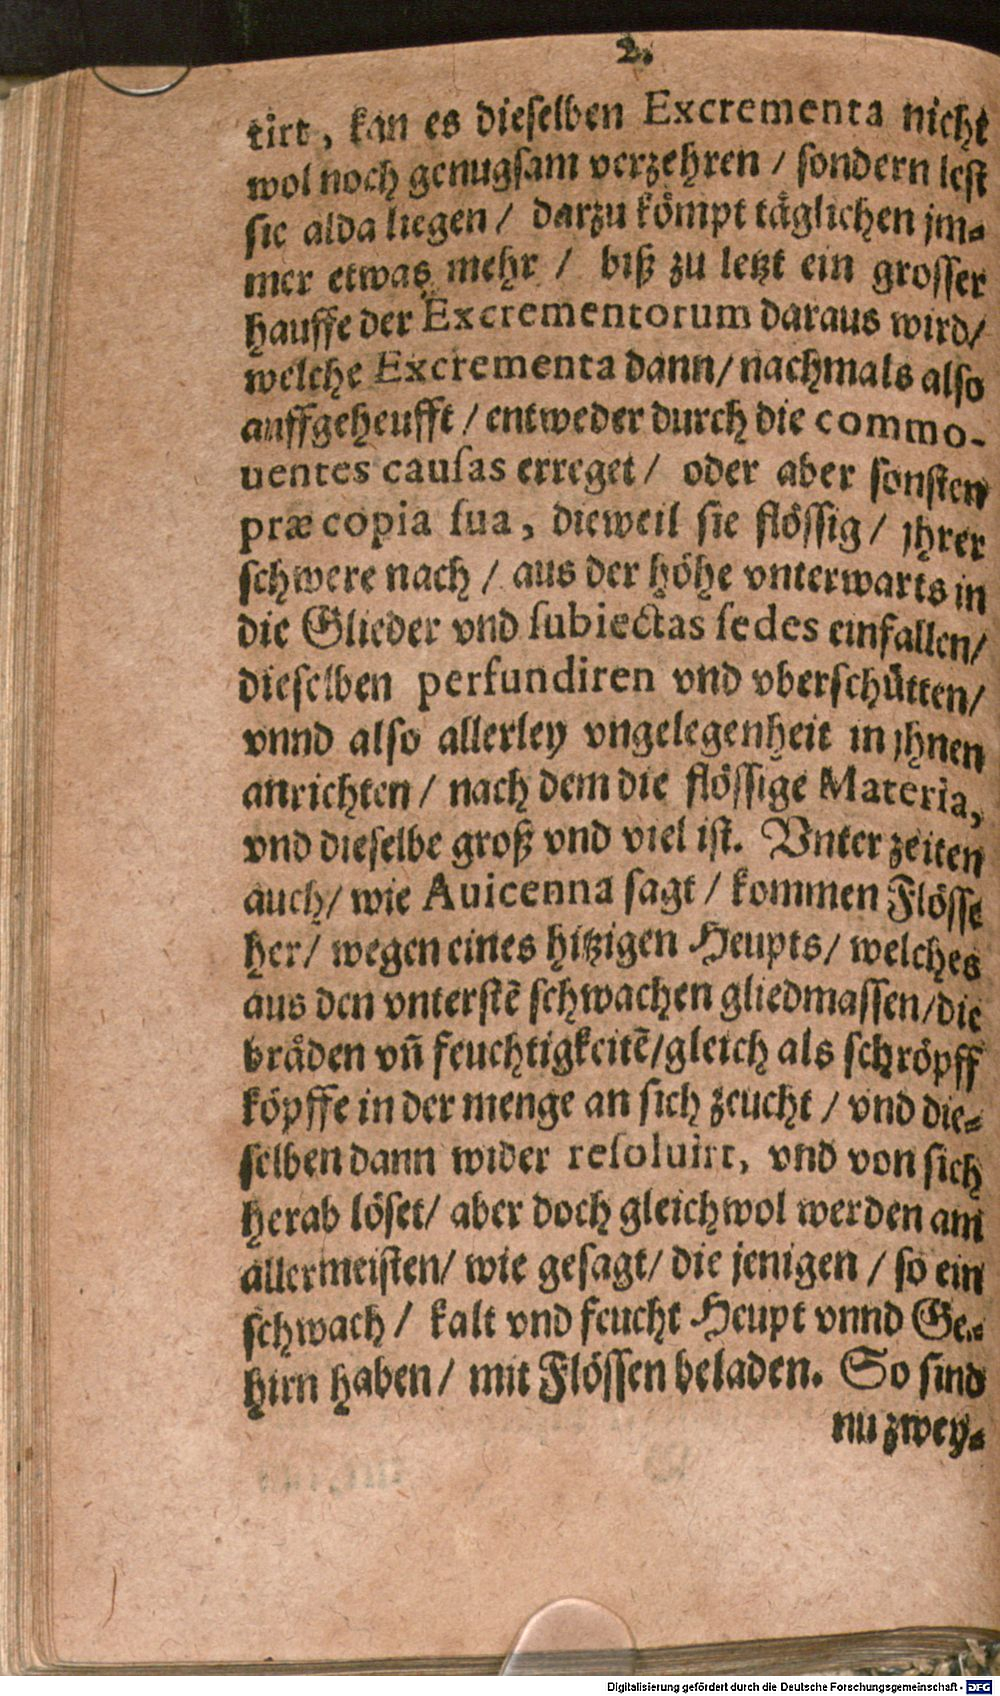 2.
tirt, kan es dieselben Excrementa nicht
wol noch genugsam verzehren / sondern lest
sie alda liegen / darzu kömpt täglichen jm-
mer etwas mehr / biß zu letzt ein grosser
hauffe der Excrementorum daraus wird/
welche Excrementa dann/ nachmals also
auffgeheufft / entweder durch die commo-
uentes causas erreget / oder aber sonsten
præ copia sua, dieweil sie flössig / jhrer
schwere nach / aus der höhe vnterwarts in
die Glieder vnd subiectas sedes einfallen/
dieselben perfundiren vnd vberschütten/
vnnd also allerley vngelegenheit in jhnen
anrichten / nach dem die flössige Materia,
vnd dieselbe groß vnd viel ist. Vnter zeiten
auch/ wie Auicenna sagt / kommen Flösse
her/ wegen eines hitzigen Heupts/ welches
aus den vnterstẽ schwachen gliedmassen/die
bråden vñ feuchtigkeitẽ/gleich als schröpff
köpffe in der menge an sich zeucht / vnd die-
selben dann wider resoluirt, vnd von sich
herab löset/ aber doch gleichwol werden am
allermeisten/ wie gesagt/ die jenigen / so ein
schwach / kalt vnd feucht Heupt vnnd Ge-
hirn haben / mit Flössen beladen. So sind
nu zwey-
Digitalisierung gefördert durch die Deutsche Forschungsgemeinschaft - DFG